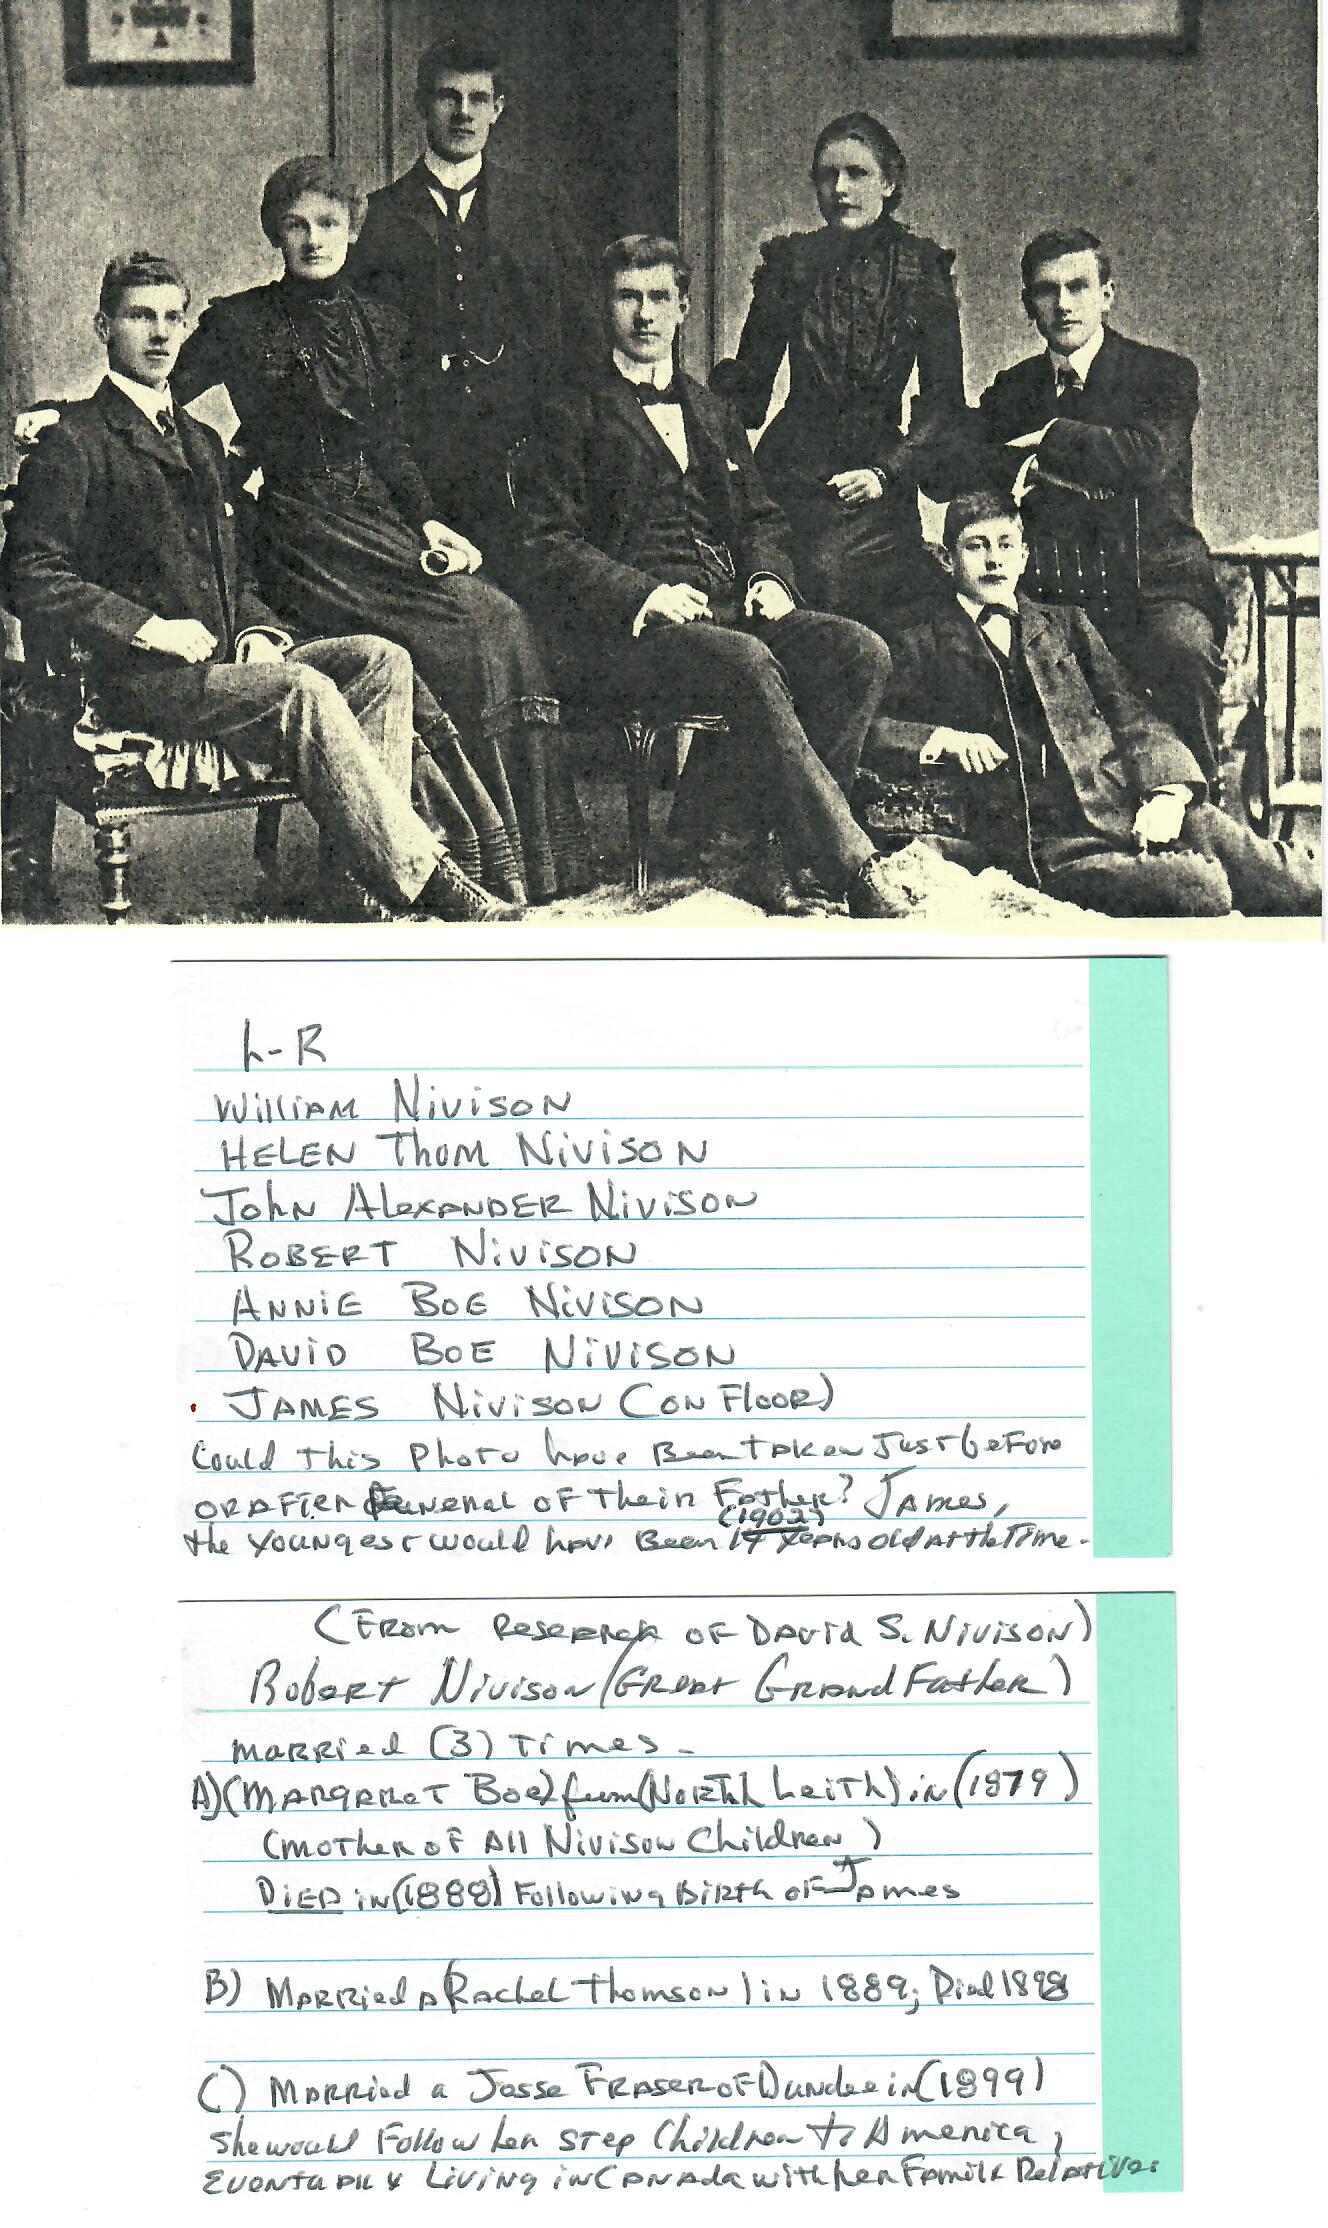 L-R
William Nivison
HELEN Thom Nivison
John Alexander Nivison
Robert Nivison
Annie Boe Nivison
David Boe Nivison
James Nivison (on Floor)
Could this photo have Been Taken Just before
or after funeral of their Father? James,
(1902)
the youngest would have Been 14 years old at the Time.
(From Research of David S. Nivison)
Robert Nivison (Great GrandFather)
married (3) Times.
A) (Margaret Boe) from (North Leith) in (1879)
(mother of All Nivison Children)
DIED in (1888) Following Birth of James
B) Married a (Rachel Thomson) in 1889; Died 1898
C) Married a Jesse Fraser of Dundee in (1899)
She would Follow her step Children to America,
Living in Canada with her Family Relatives